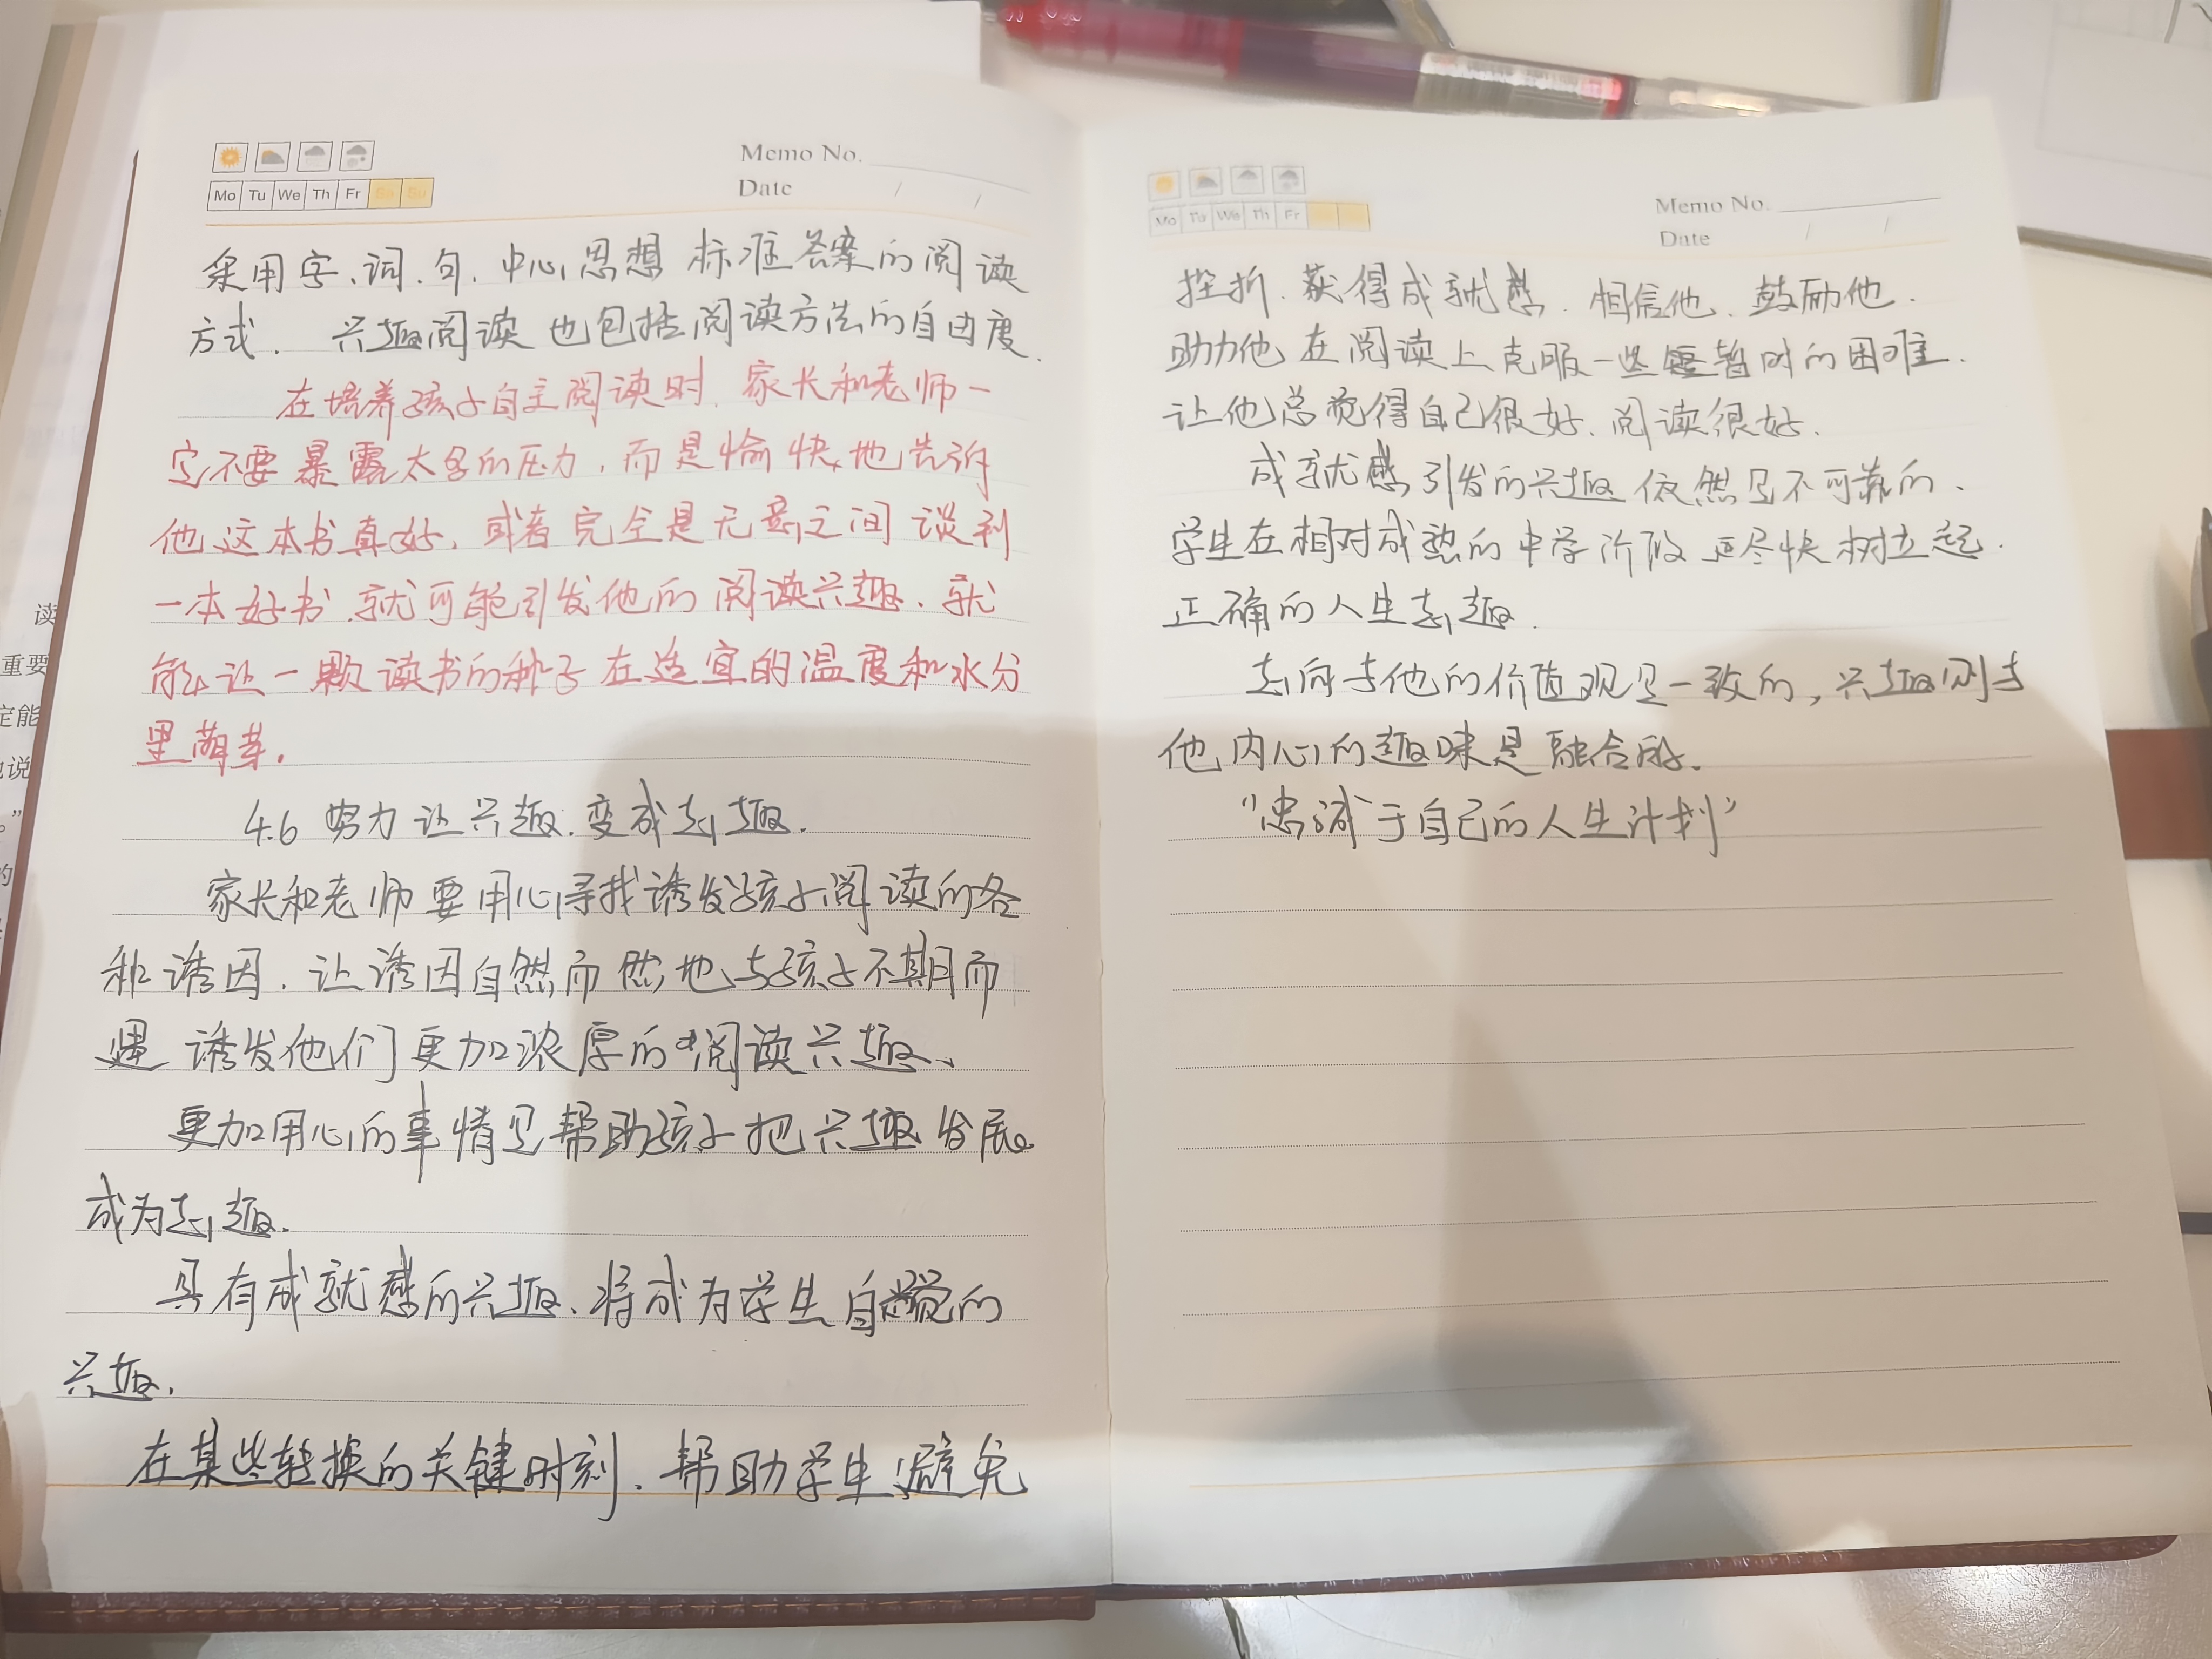 Memo No.
Mo Tu We Th Fr Sa Su
Date / /
采用字、词、句、中心思想 标准答案的阅读
方式. 兴趣阅读也包括阅读方法的自由度.
在培养孩子自主阅读时、家长和老师一
定不要暴露太多的压力,而是愉快地告诉
他这本书真好,或者完全是无意之间谈到
一本好书、就可能引发他的阅读兴趣、就
能让一颗读书的种子在适宜的温度和水分
里萌芽.
4.6 努力让兴趣变成志趣.
家长和老师要用心寻找诱发孩子阅读的各
种诱因、让诱因自然而然地与孩子不期而
遇 诱发他们更加浓厚的阅读兴趣、
更加用心的事情是帮助孩子把兴趣发展
成为志趣.
具有成就感的兴趣、将成为学生自觉的
兴趣.
在某些转换的关键时刻、帮助学生避免
Memo No.
Mo Tu We Th Fr
Date / /
挫折、获得成就感、相信他、鼓励他.
助力他在阅读上克服一些短暂时的困难.
让他总觉得自己很好、阅读很好.
成就感引发的兴趣依然是不可靠的、
学生在相对成熟的中学阶段应尽快树立起
正确的人生志趣.
志向与他的价值观是一致的,兴趣则与
他内心的趣味是融合的.
“忠诚于自己的人生计划”
读
重要
定能
也说
。”
的